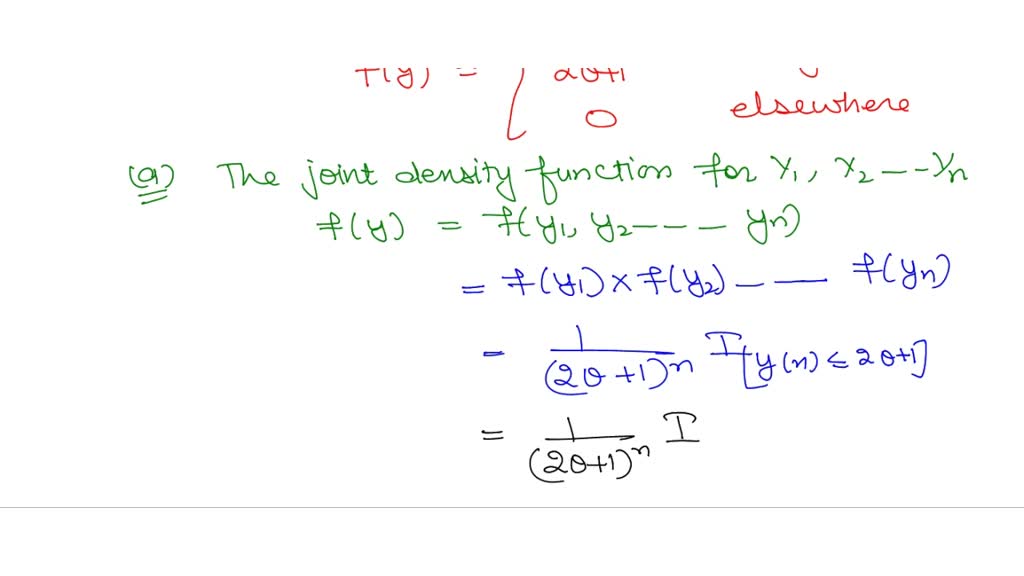 f(y) = { 2θ+1
0 elsewhere
(a) The joint density function for Y₁, Y₂ -- Yₙ
f(y) = f(y₁, y₂ --- yₙ)
= f(y₁) × f(y₂) -- f(yₙ)
= 1/(2θ+1)ⁿ I[y(n) ≤ 2θ+1]
= 1/(2θ+1)ⁿ I